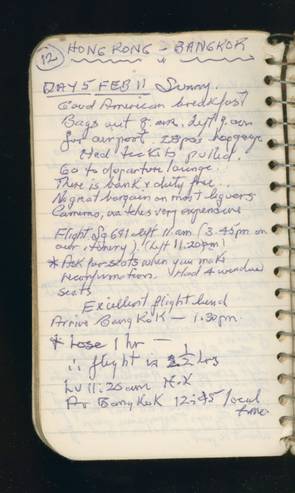 12 HONG KONG - BANGKOK
DAY 5 FEB 11 Sunny.
Good American breakfast
Bags out 8 am. left 9 am
for airport. baggage
Had tickets pulled.
Go to departure lounge.
There is bank & duty free.
No great bargain on most liquors
Cameras, watches very expensive
Flight SQ 691 left 11 am (3.45 pm on
our itinery) (left 11.20pm)
* Ask for seats when you make
reconfirmation. Had 4 window
seats
Excellent flight lunch
Arrive Bangkok - 1.30 pm.
* Lose 1 hr -
∴ flight is 2½ hrs
Lv 11.20 am H.K
Ar Bangkok 12:45 local
time